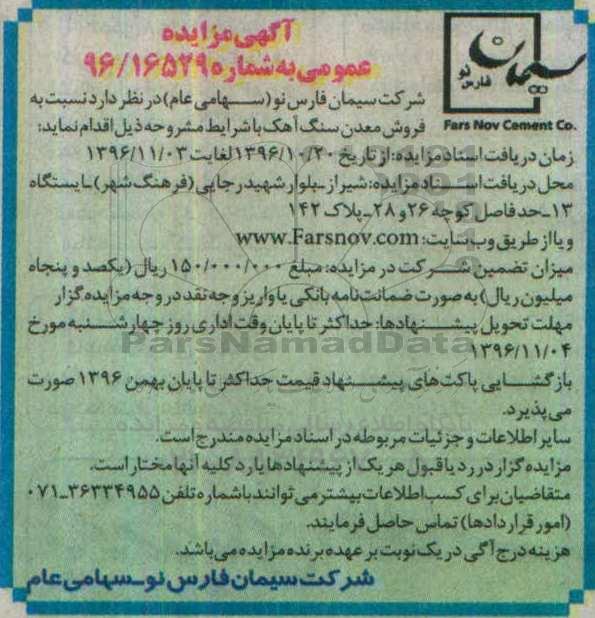 آگهی مزایده
عمومی به شماره ۹۶/۱۶۵۲۹
سیمان
فارس نو
Fars Nov Cement Co.
شرکت سیمان فارس نو (سهامی عام) در نظر دارد نسبت به
فروش معدن سنگ آهک با شرایط مشروحه ذیل اقدام نماید:
زمان دریافت اسناد مزایده: از تاریخ ۱۳۹۶/۱۰/۲۰ لغایت ۱۳۹۶/۱۱/۰۳
محل دریافت اسناد مزایده: شیراز ـ بلوار شهید رجایی (فرهنگ شهر) ـ ایستگاه
۱۳ ـ حد فاصل کوچه ۲۶ و ۲۸ ـ پلاک ۱۴۲
و یا از طریق وب سایت: www.Farsnov.com
میزان تضمین شرکت در مزایده: مبلغ ۱۵۰/۰۰۰/۰۰۰ ریال (یکصد و پنجاه
میلیون ریال) به صورت ضمانت نامه بانکی یا واریز وجه نقد در وجه مزایده گزار
مهلت تحویل پیشنهادها: حداکثر تا پایان وقت اداری روز چهارشنبه مورخ
۱۳۹۶/۱۱/۰۴
ParsNamadData
بازگشایی پاکت های پیشنهاد قیمت حداکثر تا پایان بهمن ۱۳۹۶ صورت
می پذیرد.
سایر اطلاعات و جزئیات مربوطه در اسناد مزایده مندرج است.
مزایده گزار در رد یا قبول هر یک از پیشنهادها یا رد کلیه آنها مختار است.
متقاضیان برای کسب اطلاعات بیشتر می توانند با شماره تلفن ۳۶۳۳۴۹۵۵ـ۰۷۱
(امور قراردادها) تماس حاصل فرمایند.
هزینه درج آگی در یک نوبت بر عهده برنده مزایده می باشد.
شرکت سیمان فارس نو ـ سهامی عام